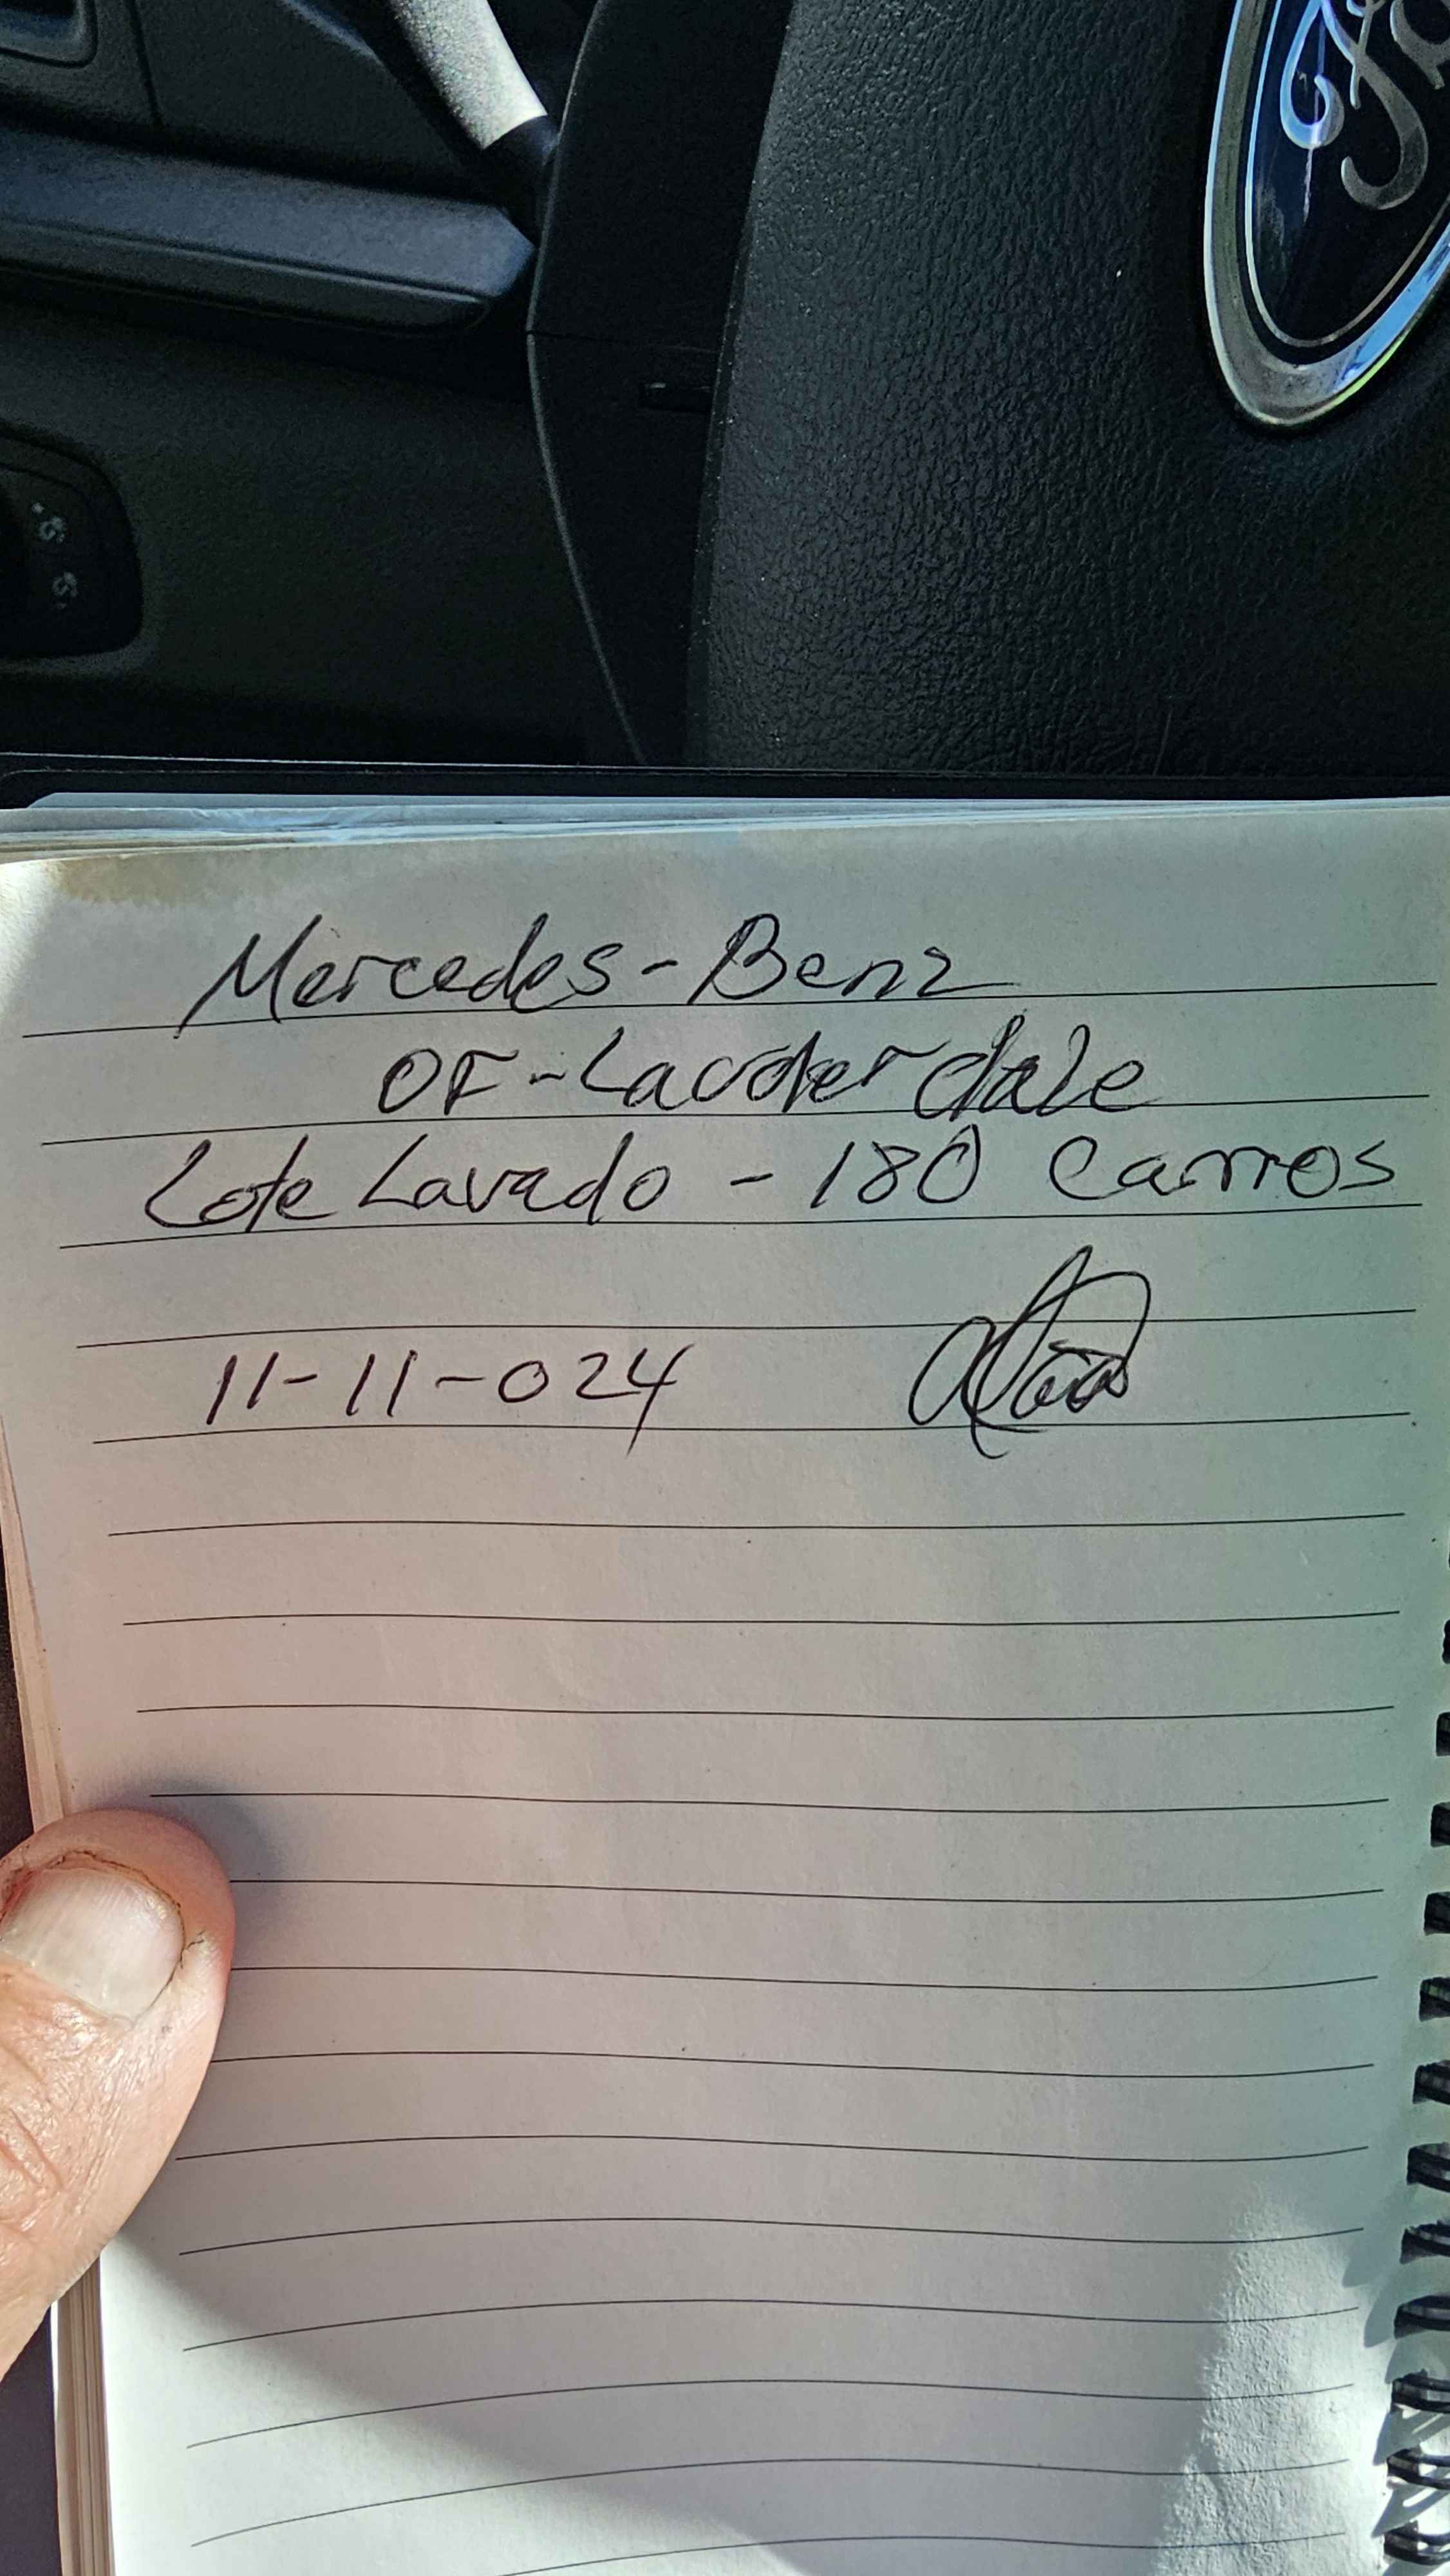 Mercedes-Benz
OF-Lauderdale
Lote Lavado - 180 Carros
11-11-024